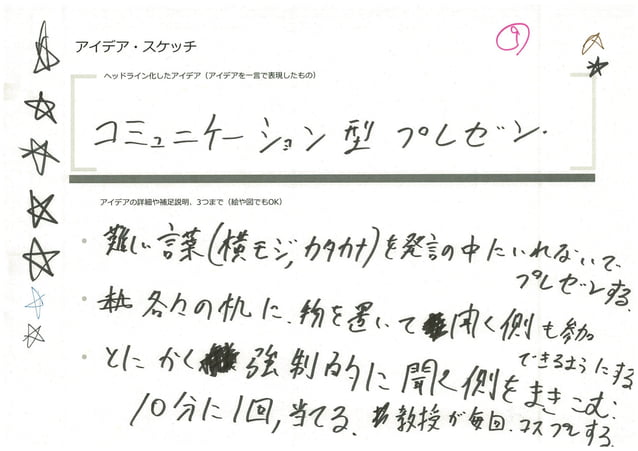 アイデア・スケッチ
9
ヘッドライン化したアイデア（アイデアを一言で表現したもの）
コミュニケーション型 プレゼン.
アイデアの詳細や補足説明、3つまで（絵や図でもOK）
難しい言葉(横モジ,カタカナ)を発言の中にいれないで、
プレゼンする
各々の机に、物を置いて聞く側も参加
できるようにする
とにかく強制的に聞く側をまきこむ.
10分に1回,当てる. 教授が毎回.コスプレする.